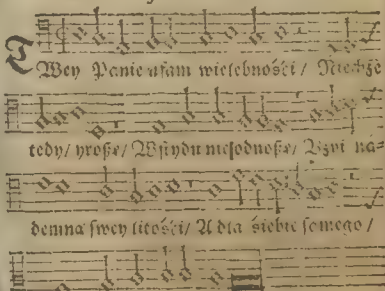 TWey Panie ufam wielebności / Niechże
tedy / proszę / Wstydu nieodnoszę / Użyi na=
demną swey litości / A dla siebie samego /